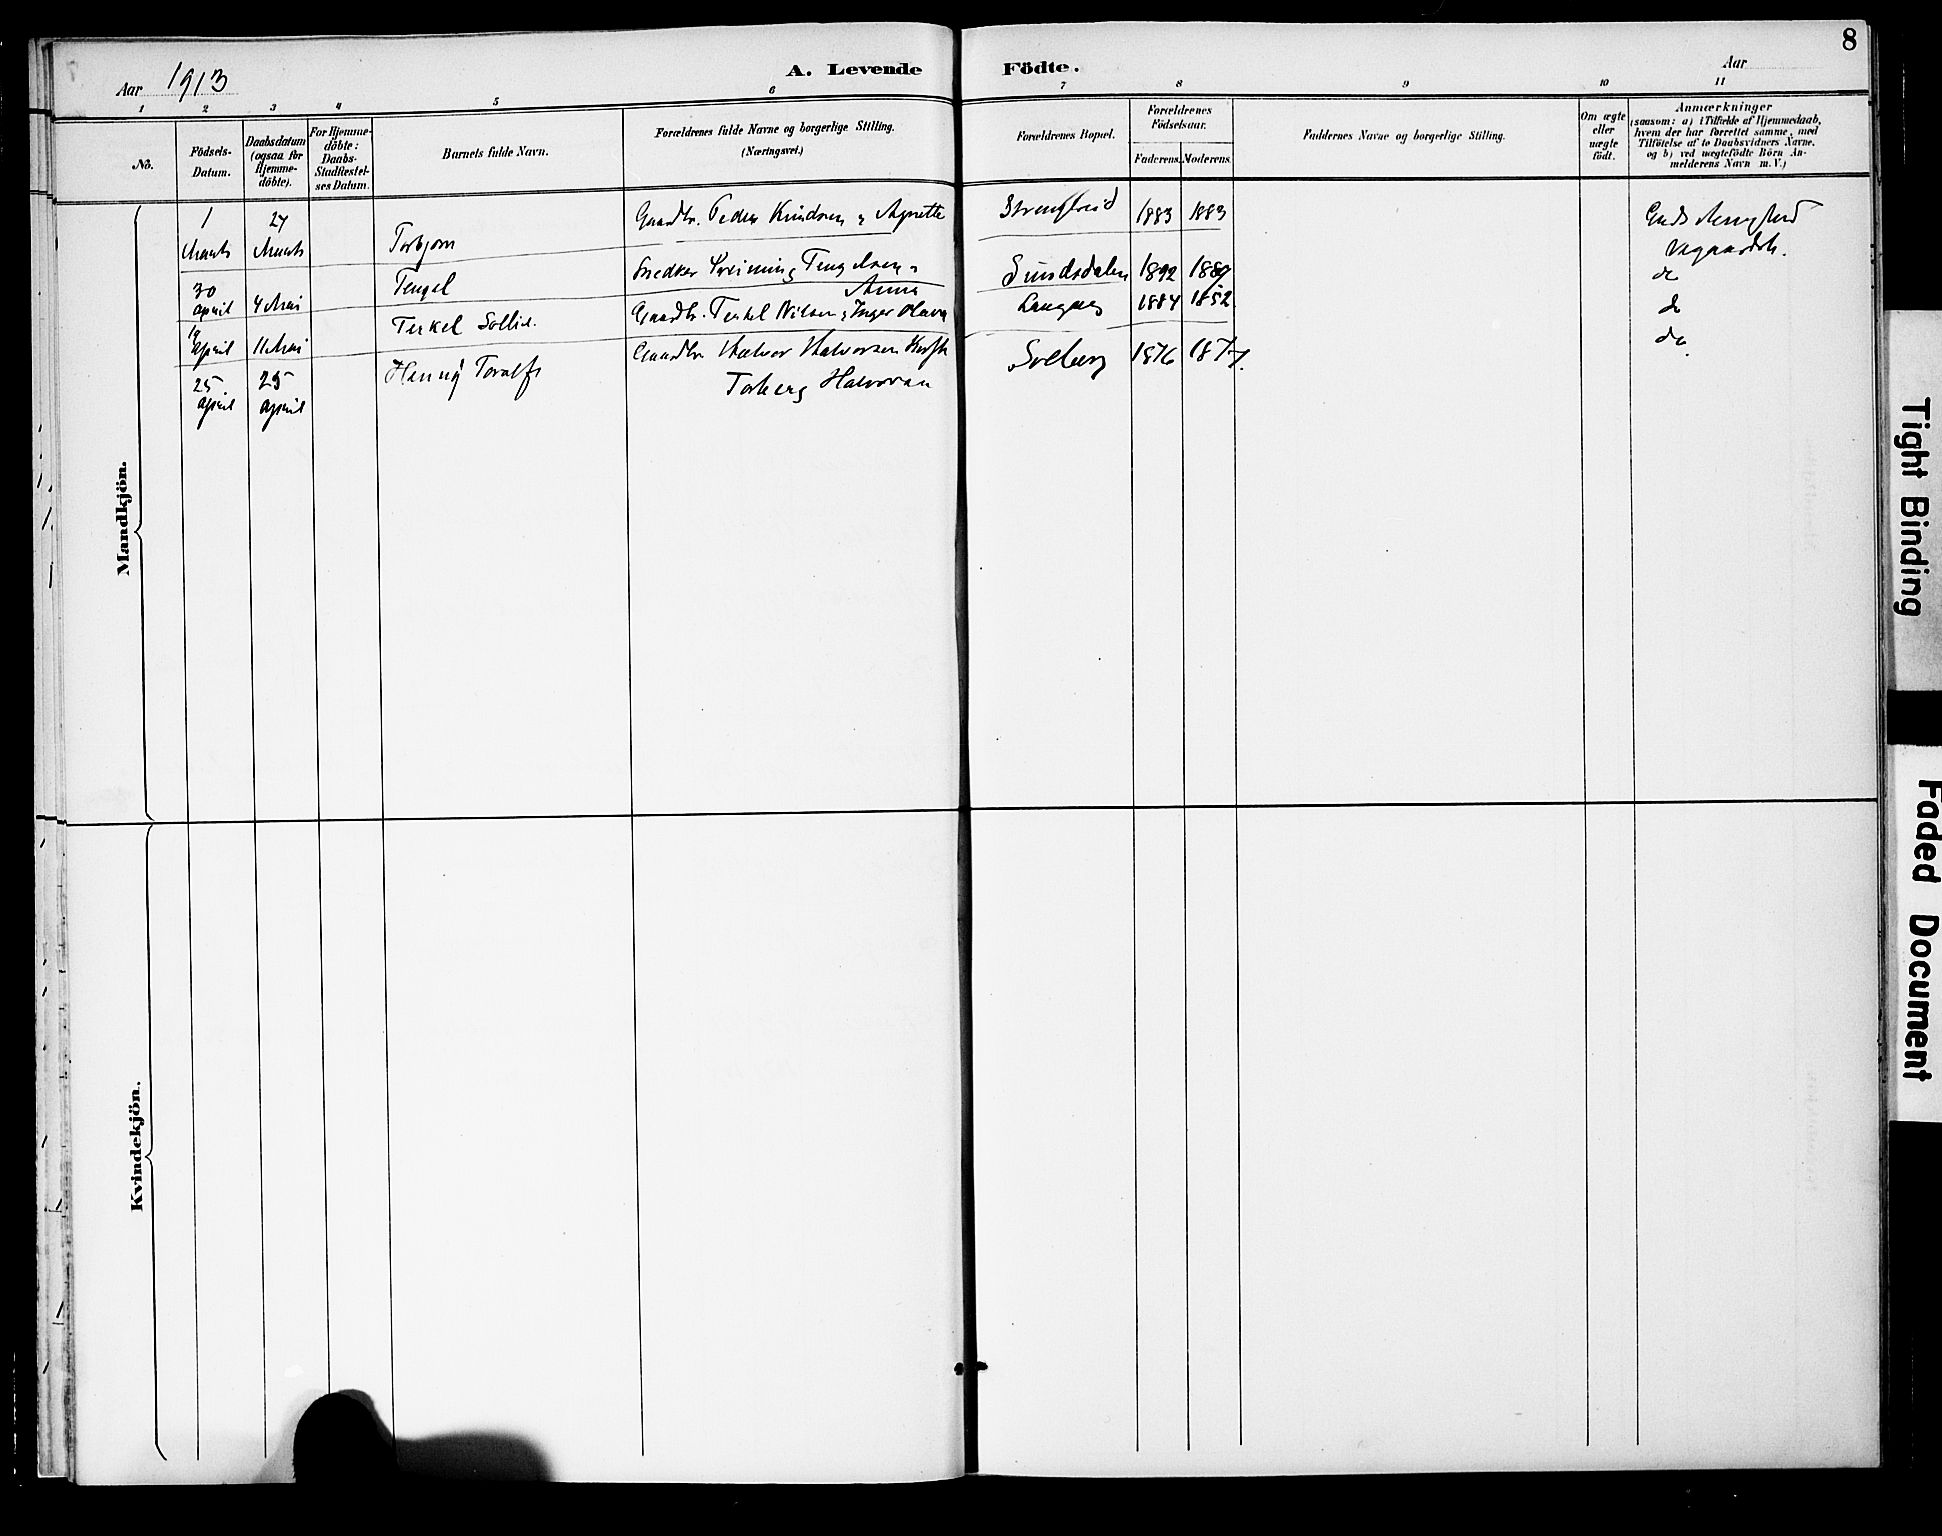 8
Aar 1913 A. Levende Födte. Aar
1 2 3 4 5 6 7 8 9 10 11
No.
Födsels-
Datum.
Daabsdatum
(ogsaa for
Hjemme-
döbte).
For Hjemme-
döbte:
Daabs-
Stadfæstel-
ses Datum.
Barnets fulde Navn.
Forældrenes fulde Navne og borgerlige Stilling.
(Næringsvei.)
Forældrenes Bopæl.
Forældrenes
Födselsaar.
Faderens. Moderens.
Faddernes Navne og borgerlige Stilling.
Om ægte
eller
uægte
født.
Anmærkninger
(saasom: a) i Tilfælde af Hjemmedaab,
hvem der har forrettet samme, med
Tilföielse af to Daabsvidners Navne.
og b) ved uægtefödte Börn An-
melderens Navn m. V.)
Mandkjön.
1 Marts 27 Marts Torbjørn Gaardbr. Peder Knudsen & Agnette 1883 1883
30 april 4 Mai Tengel Snedker Tengelsen & Anna Sundsdalen 1892 1889 do
19 april 11 Mai Terkel Sollid. Gaardbr. Terkel Nilsen & Inger Olava Langang 1884 1882 do
25 april 25 april Hanny Toralf Gaardbr Halvor Halvorsen
Torberg Halvorsen Solberg 1876 1877. do
Kvindekjön.
Tight Binding
Faded Document